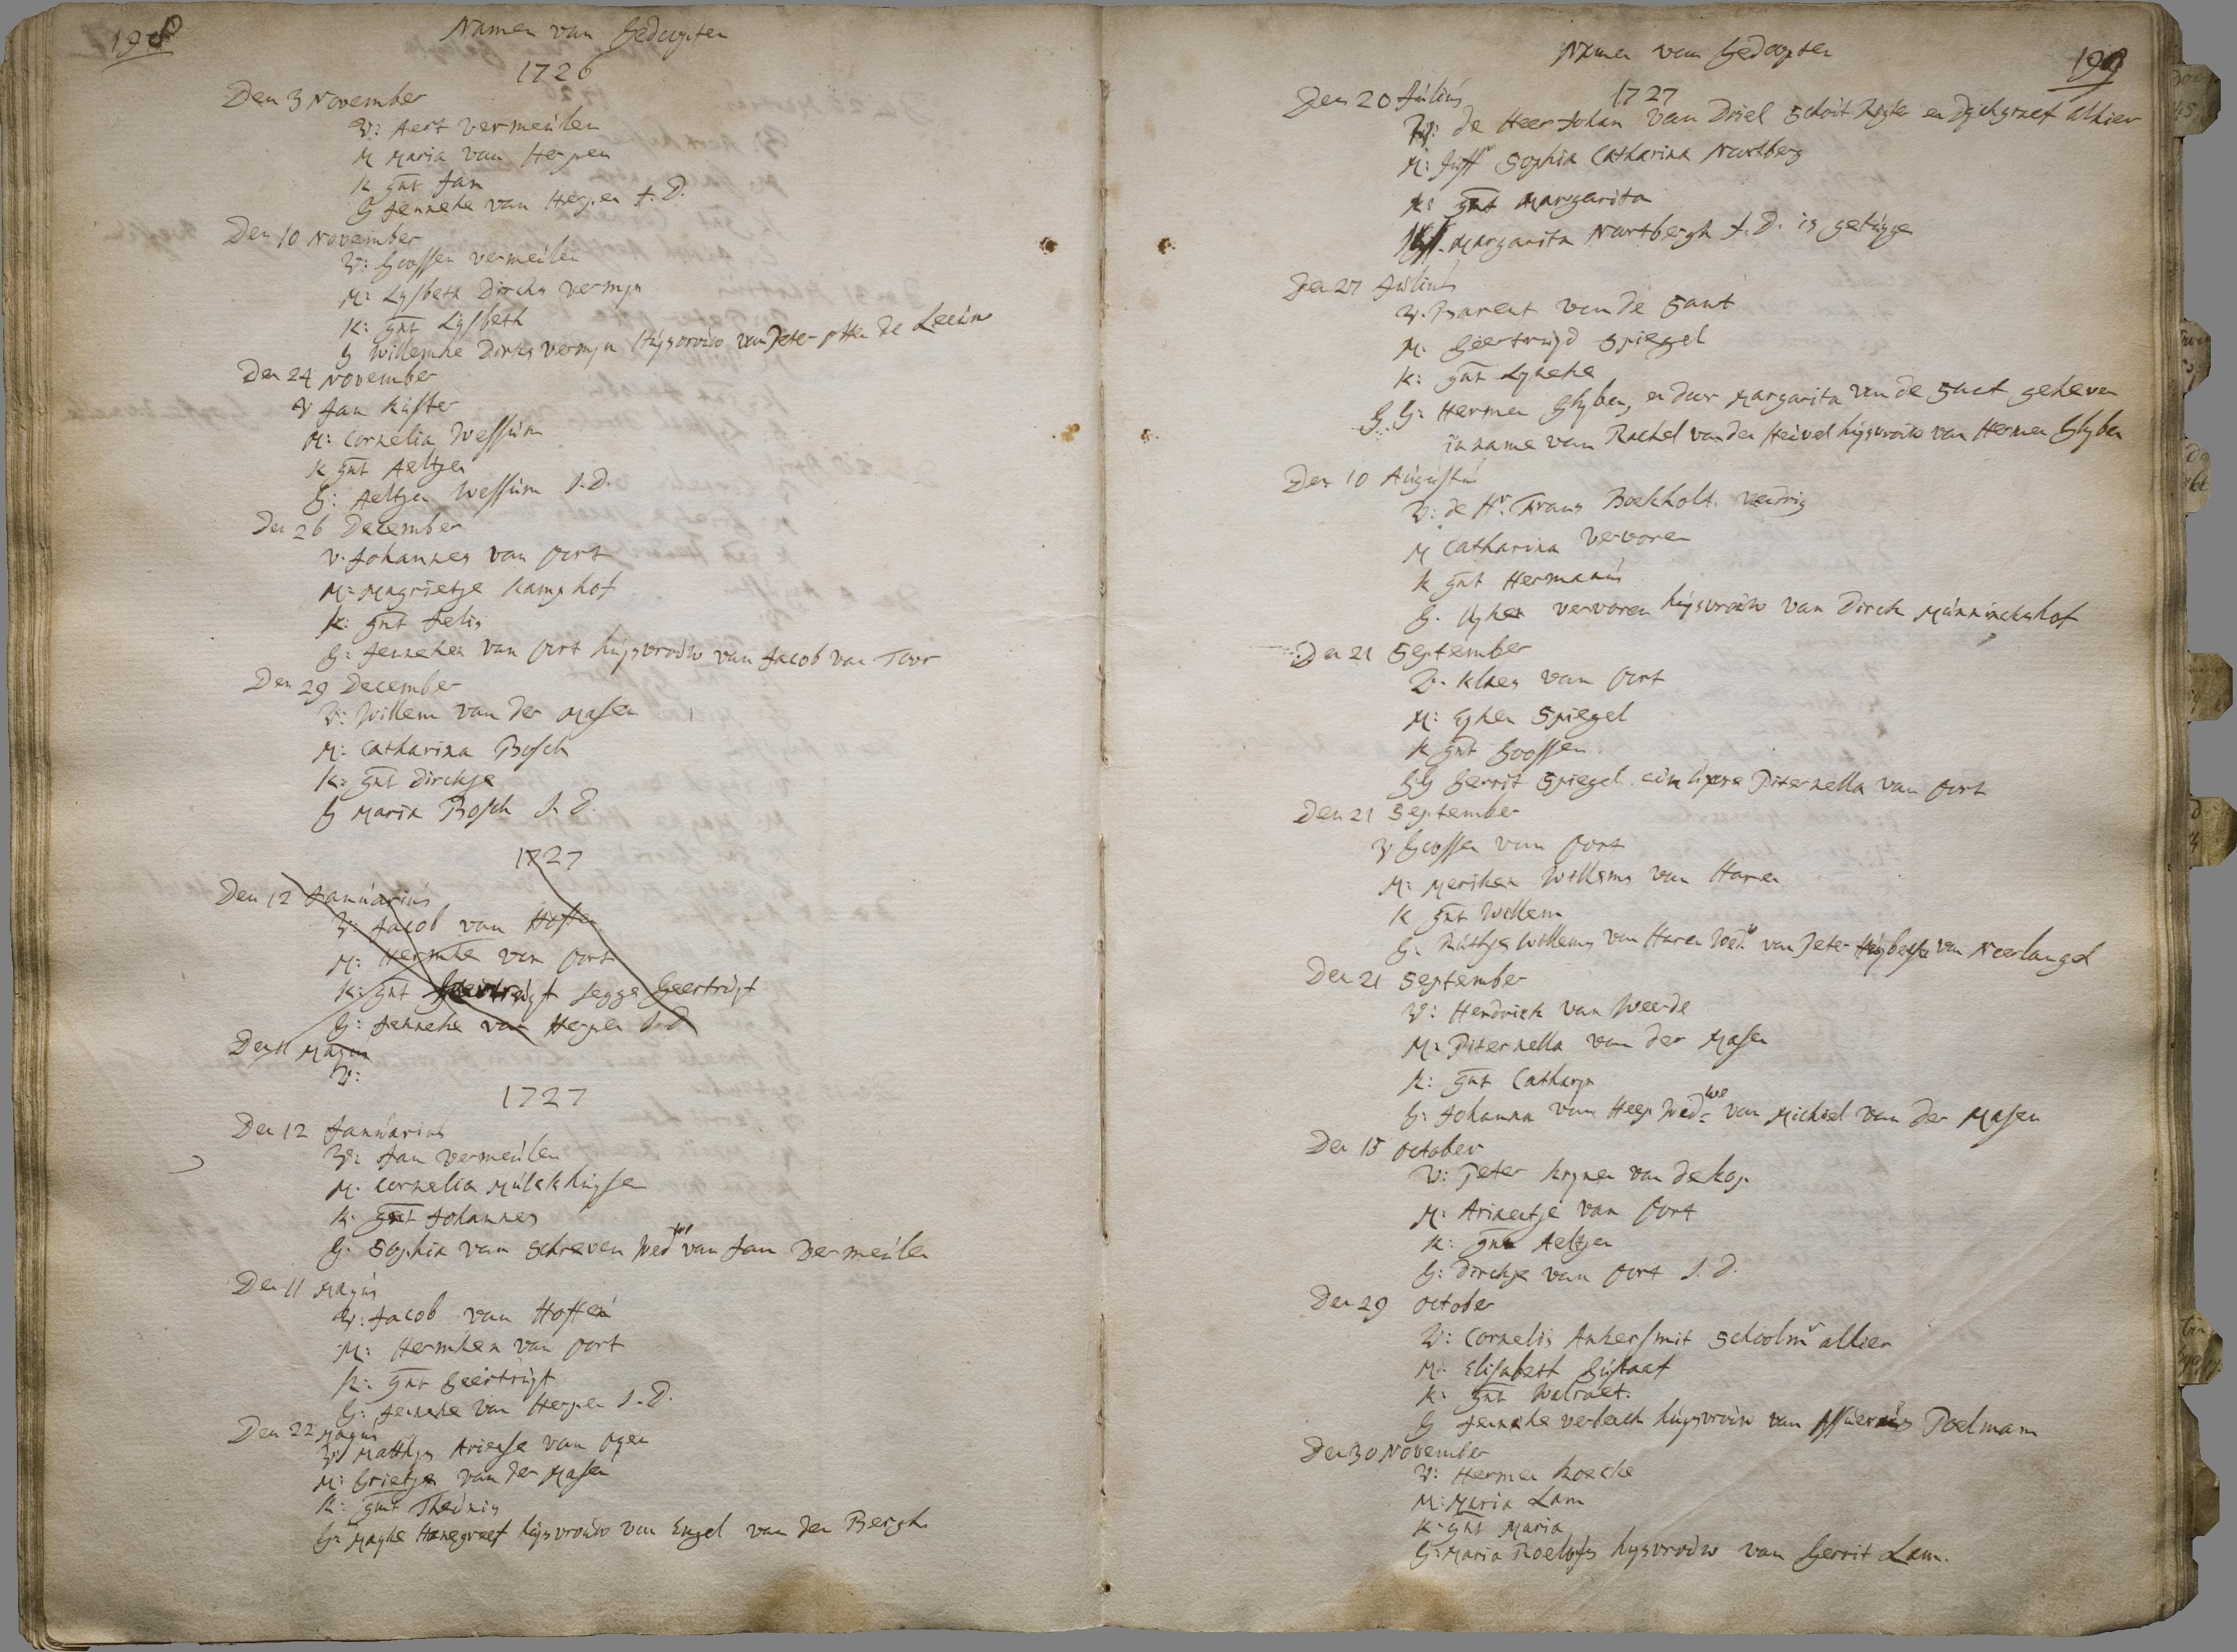 198
Namen van Gedoopten
1726
Den 3 November
V: Aert vermeúlen
M Maria van Herpen
K gnt Jan
G Jenneke van Herpen J. D.
Den 10 November
V: Goossen vermeúlen
M: Lysbeth Dircks vermyn
K: gnt Lysbeth
G Willemke Dircks vermyn húysvroúw van Peter de Leeúw
Den 24 November
V Jan Kúster
M: Cornelia Wessúm
K gnt Aeltjen
G: Aeltjen Wessúm J. D.
Den 26 December
V. Johannes van Oort
M: Magrietje Kamphof
K: gnt Jelis
G: Jenneken van Oort húysvroúw van Jacob van Toor
Den 29 December
V: Willem van der Masen
M: Catharina Bosch
K: gnt Dirckje
G Maria Bosch J. D.
1727
Den 12 Janúariús
V: Jacob van Hoffen
M: Hermke van Oort
K: gnt Geertrúyt segge Geertrúyt
G: Jenneke van Herpen J. D.
Den 11 Majús
V:
1727
Den 12 Janúariús
V: Jan vermeúlen
M: Cornelia Múlekhúysen
K: gnt Johannes
G: Sophia van Schreven Wed.we van Jan Vermeúlen
Den 11 Majús
V: Jacob van Hoffen
M: Hermken van Oort
K: gnt Geertrúyt
G: Jenneke van Herpen J. D.
Den 22 Majús
V Matthys Ariense van Oyen
M: Grietjen van der Masen
K: gnt Theúnis
G: Mayke Hanegraef húysvroúw van Engel van den Bergh
199
Namen van Gedoopten
1727
Den 20 Júliús
V: de Heer Johan van Driel Schoút Rigter en Dyckgraef alhier
M: Júffr Sophia Catharina Nartberg
K: gnt Margarita
Margarita Nartbergh J. D. is getúyge
Den 27 Júliús
V. Barent van de Sant
M. Geertrúyd Spiegel
K: gnt Lyneke
G.G: Hermen Glyben, en door Margarita van de Sant geheven
in name van Rachel van den Heúvel húysvroúw van Hermen Glyben
Den 10 Aúgústús
V: de Hr. Frans Boekholt. vendrig
M Catharina Vervoren
K gnt Hermanús
G. Vervoren húysvroúw van Dirck Múnninckshof
Den 21 September
V. Klaes van Oort
M: Eyken Spiegel
K gnt Goossen
G.G Gerrit Spiegel Piternella van Oort
Den 21 September
V Goossen van Oort
M: Meriken Willems van Haren
K gnt Willem
G. Rútje Willems van Haren Wed.e van Peter van Neerlangel
Den 21 September
V: Hendrick van Weerde
M: Piternella van der Masen
K: gnt Catharyn
G: Johanna van Heep Wed.we van Michiel van der Masen
Den 15 October
V: Peter Krynen van de Kop
M: Ariaentje van Oort
K: gnt Aeltjen
G: Dirckje van Oort J. D.
Den 29 October
V: Cornelis Ankersmit Schoolmr alhier
M: Elisabeth Gústaef
K: gnt Walraet.
G Jenneke verbeeck húysvroúw van Assúerús Poelman
Den 30 November
V: Hermen Koecke
M: Maria Lam
K: gnt Maria
G: Maria Roelofs húysvroúw van Gerrit Lam.